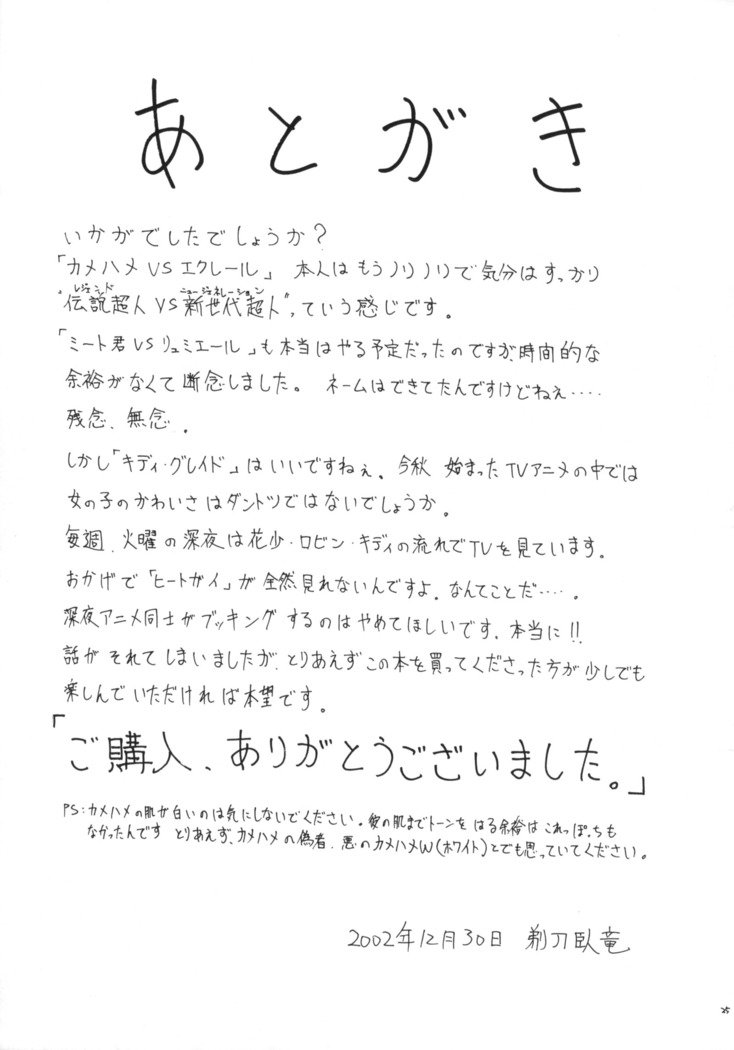 あとがき
いかがでしたでしょうか?
「カメハメVSエクレール」 本人はもうノリノリで気分はすっかり
レジェンド ニュージェネレーション
"伝説超人VS新世代超人"っていう感じです。
「ミート君VSリュミエール」も本当はやる予定だったのですが、時間的な
余裕がなくて断念しました。 ネームはできてたんですけどねぇ‥‥
残念、無念。
しかし「キディ・グレイド」はいいですねぇ。今秋 始まったTVアニメの中では
女の子のかわいさはダントツではないでしょうか。
毎週、火曜の深夜は花少・ロビン・キディの流れでTVを見ています。
おかげで「ヒートガイJ」が全然見れないんですよ。なんてことだ‥‥。
深夜アニメ同士がブッキングするのはやめてほしいです。本当に!!
話がそれてしまいましたが、とりあえずこの本を買ってくださった方が少しでも
楽しんでいただければ本望です。
「ご購入、ありがとうございました。」
PS:カメハメの肌が白いのは気にしないでください。彼の肌までトーンをはる余裕はこれっぽっちも
なかったんです とりあえず、カメハメの偽者、悪のカメハメW(ホワイト)とでも思っていてください。
2002年12月30日 剃刀臥竜
25